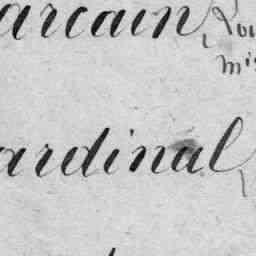 arcain, Lou
mis
ardinal,